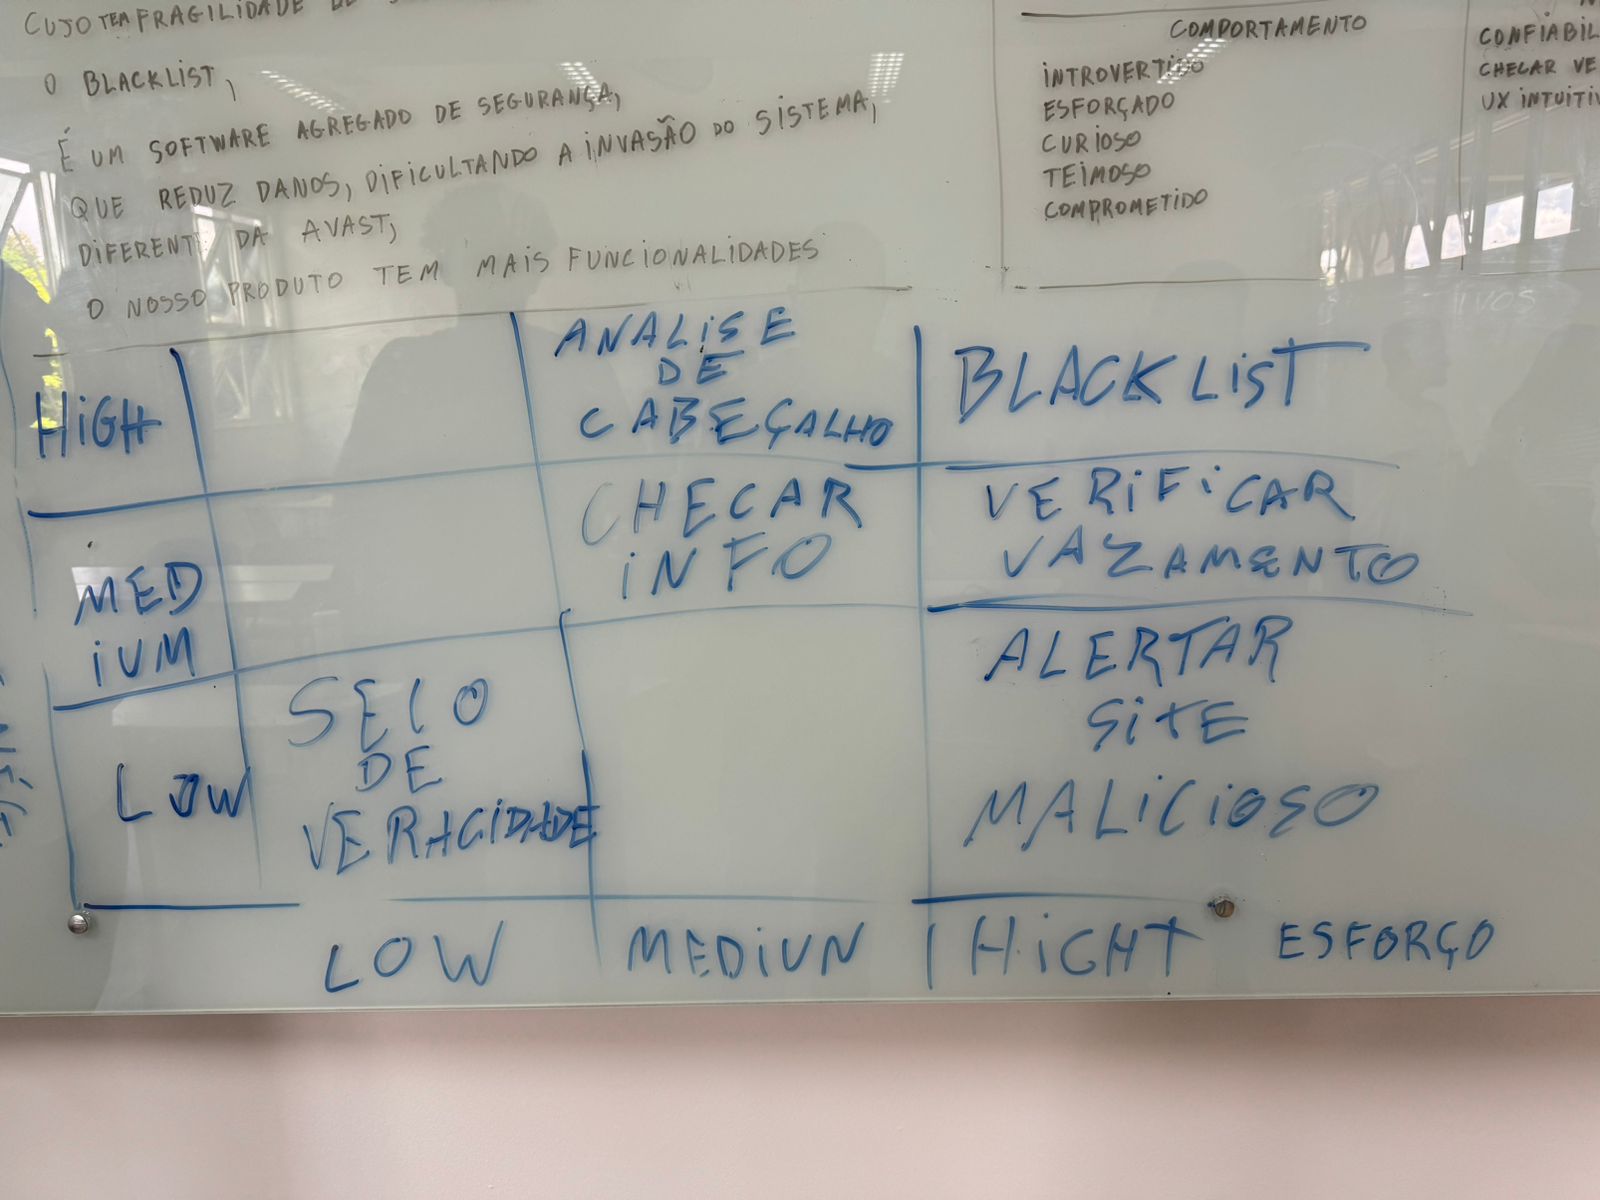 CUJO TEM FRAGILIDADE DE
O BLACKLIST,
É UM SOFTWARE AGREGADO DE SEGURANÇA,
QUE REDUZ DANOS, DIFICULTANDO A INVASÃO DO SISTEMA,
DIFERENTE DA AVAST,
O NOSSO PRODUTO TEM MAIS FUNCIONALIDADES
COMPORTAMENTO
INTROVERTIDO
ESFORÇADO
CURIOSO
TEIMOSO
COMPROMETIDO
CONFIABIL
CHECAR VE
UX INTUITIV
HIGH
ANALISE
DE
CABEÇALHO
BLACKLIST
MED
IUM
CHECAR
INFO
VERIFICAR
VAZAMENTO
LOW
SELO
DE
VERACIDADE
ALERTAR
SITE
MALICIOSO
LOW
MEDIUN
HIGHT
ESFORÇO